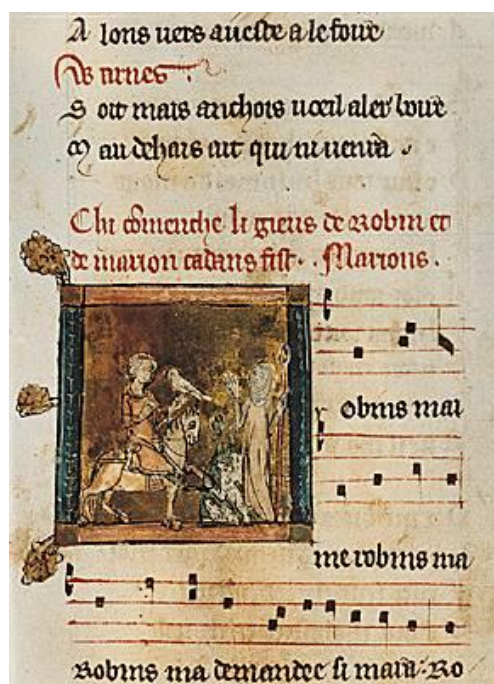 A lons uers aueste a le foire
Warnes
S oit mais anchois ueil aler boire
M au dehais ait qui ni uenra
Chi comenche li gieus de Robin et
de marion cadans fist. . Marions .
obins mai
me robins ma
Robins ma demandee si mara. Ro